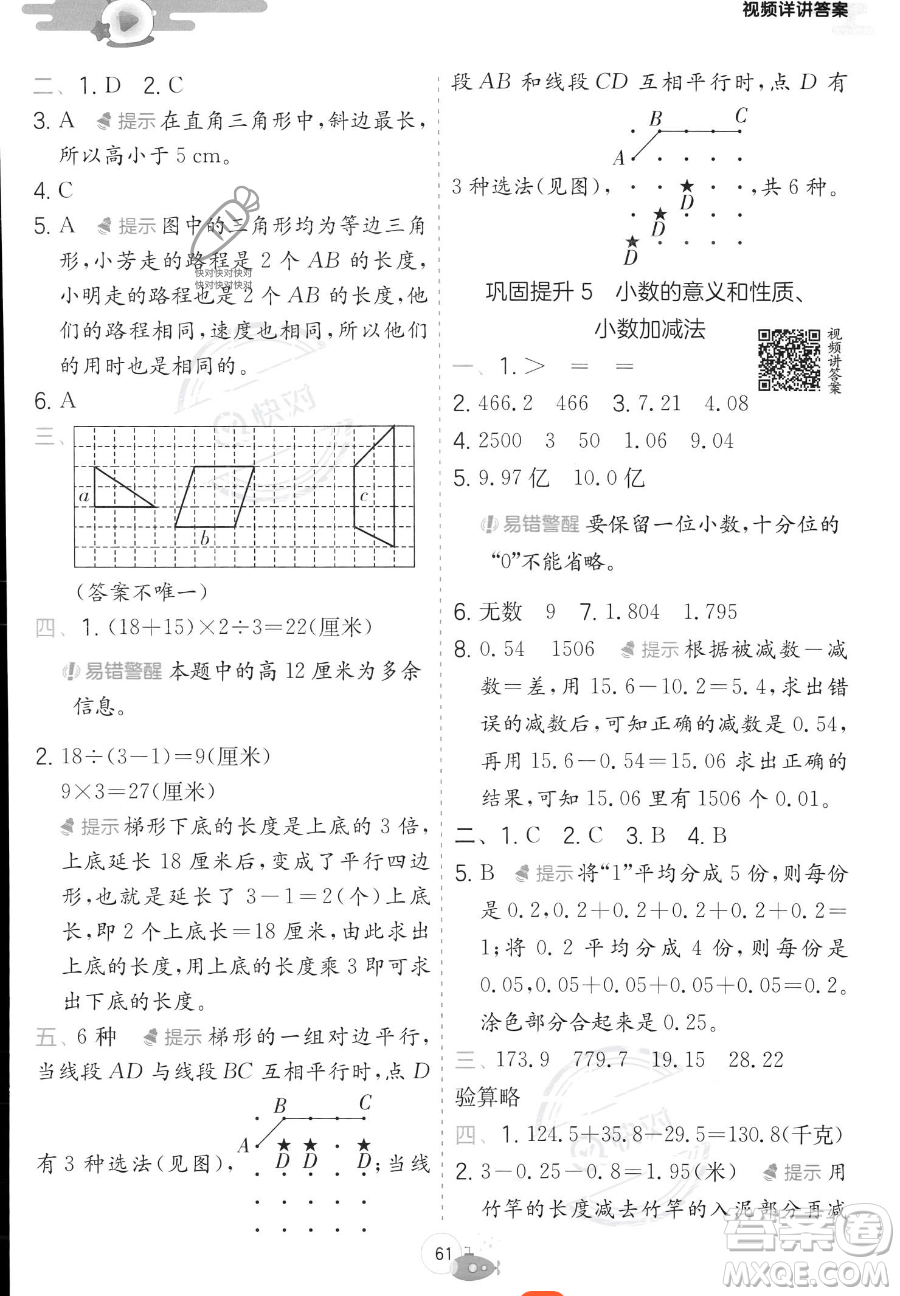 视频详讲答案
二、1. D 2. C
3. A 提示 在直角三角形中,斜边最长,
所以高小于 5 cm。
4. C
5. A 提示 图中的三角形均为等边三角
形,小芳走的路程是 2 个 AB 的长度,
小明走的路程也是 2 个 AB 的长度,他
们的路程相同,速度也相同,所以他们
的用时也是相同的。
6. A
三、
a
b
c
(答案不唯一)
四、1. (18+15)×2÷3=22(厘米)
易错警醒 本题中的高 12 厘米为多余
信息。
2. 18÷(3-1)=9(厘米)
9×3=27(厘米)
提示 梯形下底的长度是上底的 3 倍,
上底延长 18 厘米后,变成了平行四边
形,也就是延长了 3-1=2(个)上底的
长,即 2 个上底长=18 厘米,由此求出
上底的长度,用上底的长度乘 3 即可求
出下底的长度。
五、6 种 提示 梯形的一组对边平行,
当线段 AD 与线段 BC 互相平行时,点 D
B C
A
D D D
有 3 种选法(见图), ;当线
段 AB 和线段 CD 互相平行时,点 D 有
B C
A
3 种选法(见图), ,共 6 种。
D
D
D
巩固提升 5 小数的意义和性质、
小数加减法
视频讲答案
一、1. > = =
2. 466.2 466 3. 7.21 4.08
4. 2500 3 50 1.06 9.04
5. 9.97 亿 10.0 亿
易错警醒 要保留一位小数,十分位的
“0”不能省略。
6. 无数 9 7. 1.804 1.795
8. 0.54 1506 提示 根据被减数-减
数=差,用 15.6-10.2=5.4,求出错
误的减数后,可知正确的减数是 0.54,
再用 15.6-0.54=15.06 求出正确的
结果,可知 15.06 里有 1506 个 0.01。
二、1. C 2. C 3. B 4. B
5. B 提示 将“1”平均分成 5 份,每份
是 0.2,0.2+0.2+0.2+0.2+0.2=
1;将 0.2 平均分成 4 份,则每份是
0.05,0.05+0.05+0.05+0.05=0.2。
涂色部分合起来是 0.25。
三、173.9 779.7 19.15 28.22
验算略
四、1. 124.5+35.8-29.5=130.8(千克)
2. 3-0.25-0.8=1.95(米) 提示 用
竹竿的长度减去竹竿的入泥部分再减
61
快对快对快对
快对快对快对
快对
快对
答案圈
MXQE.COM